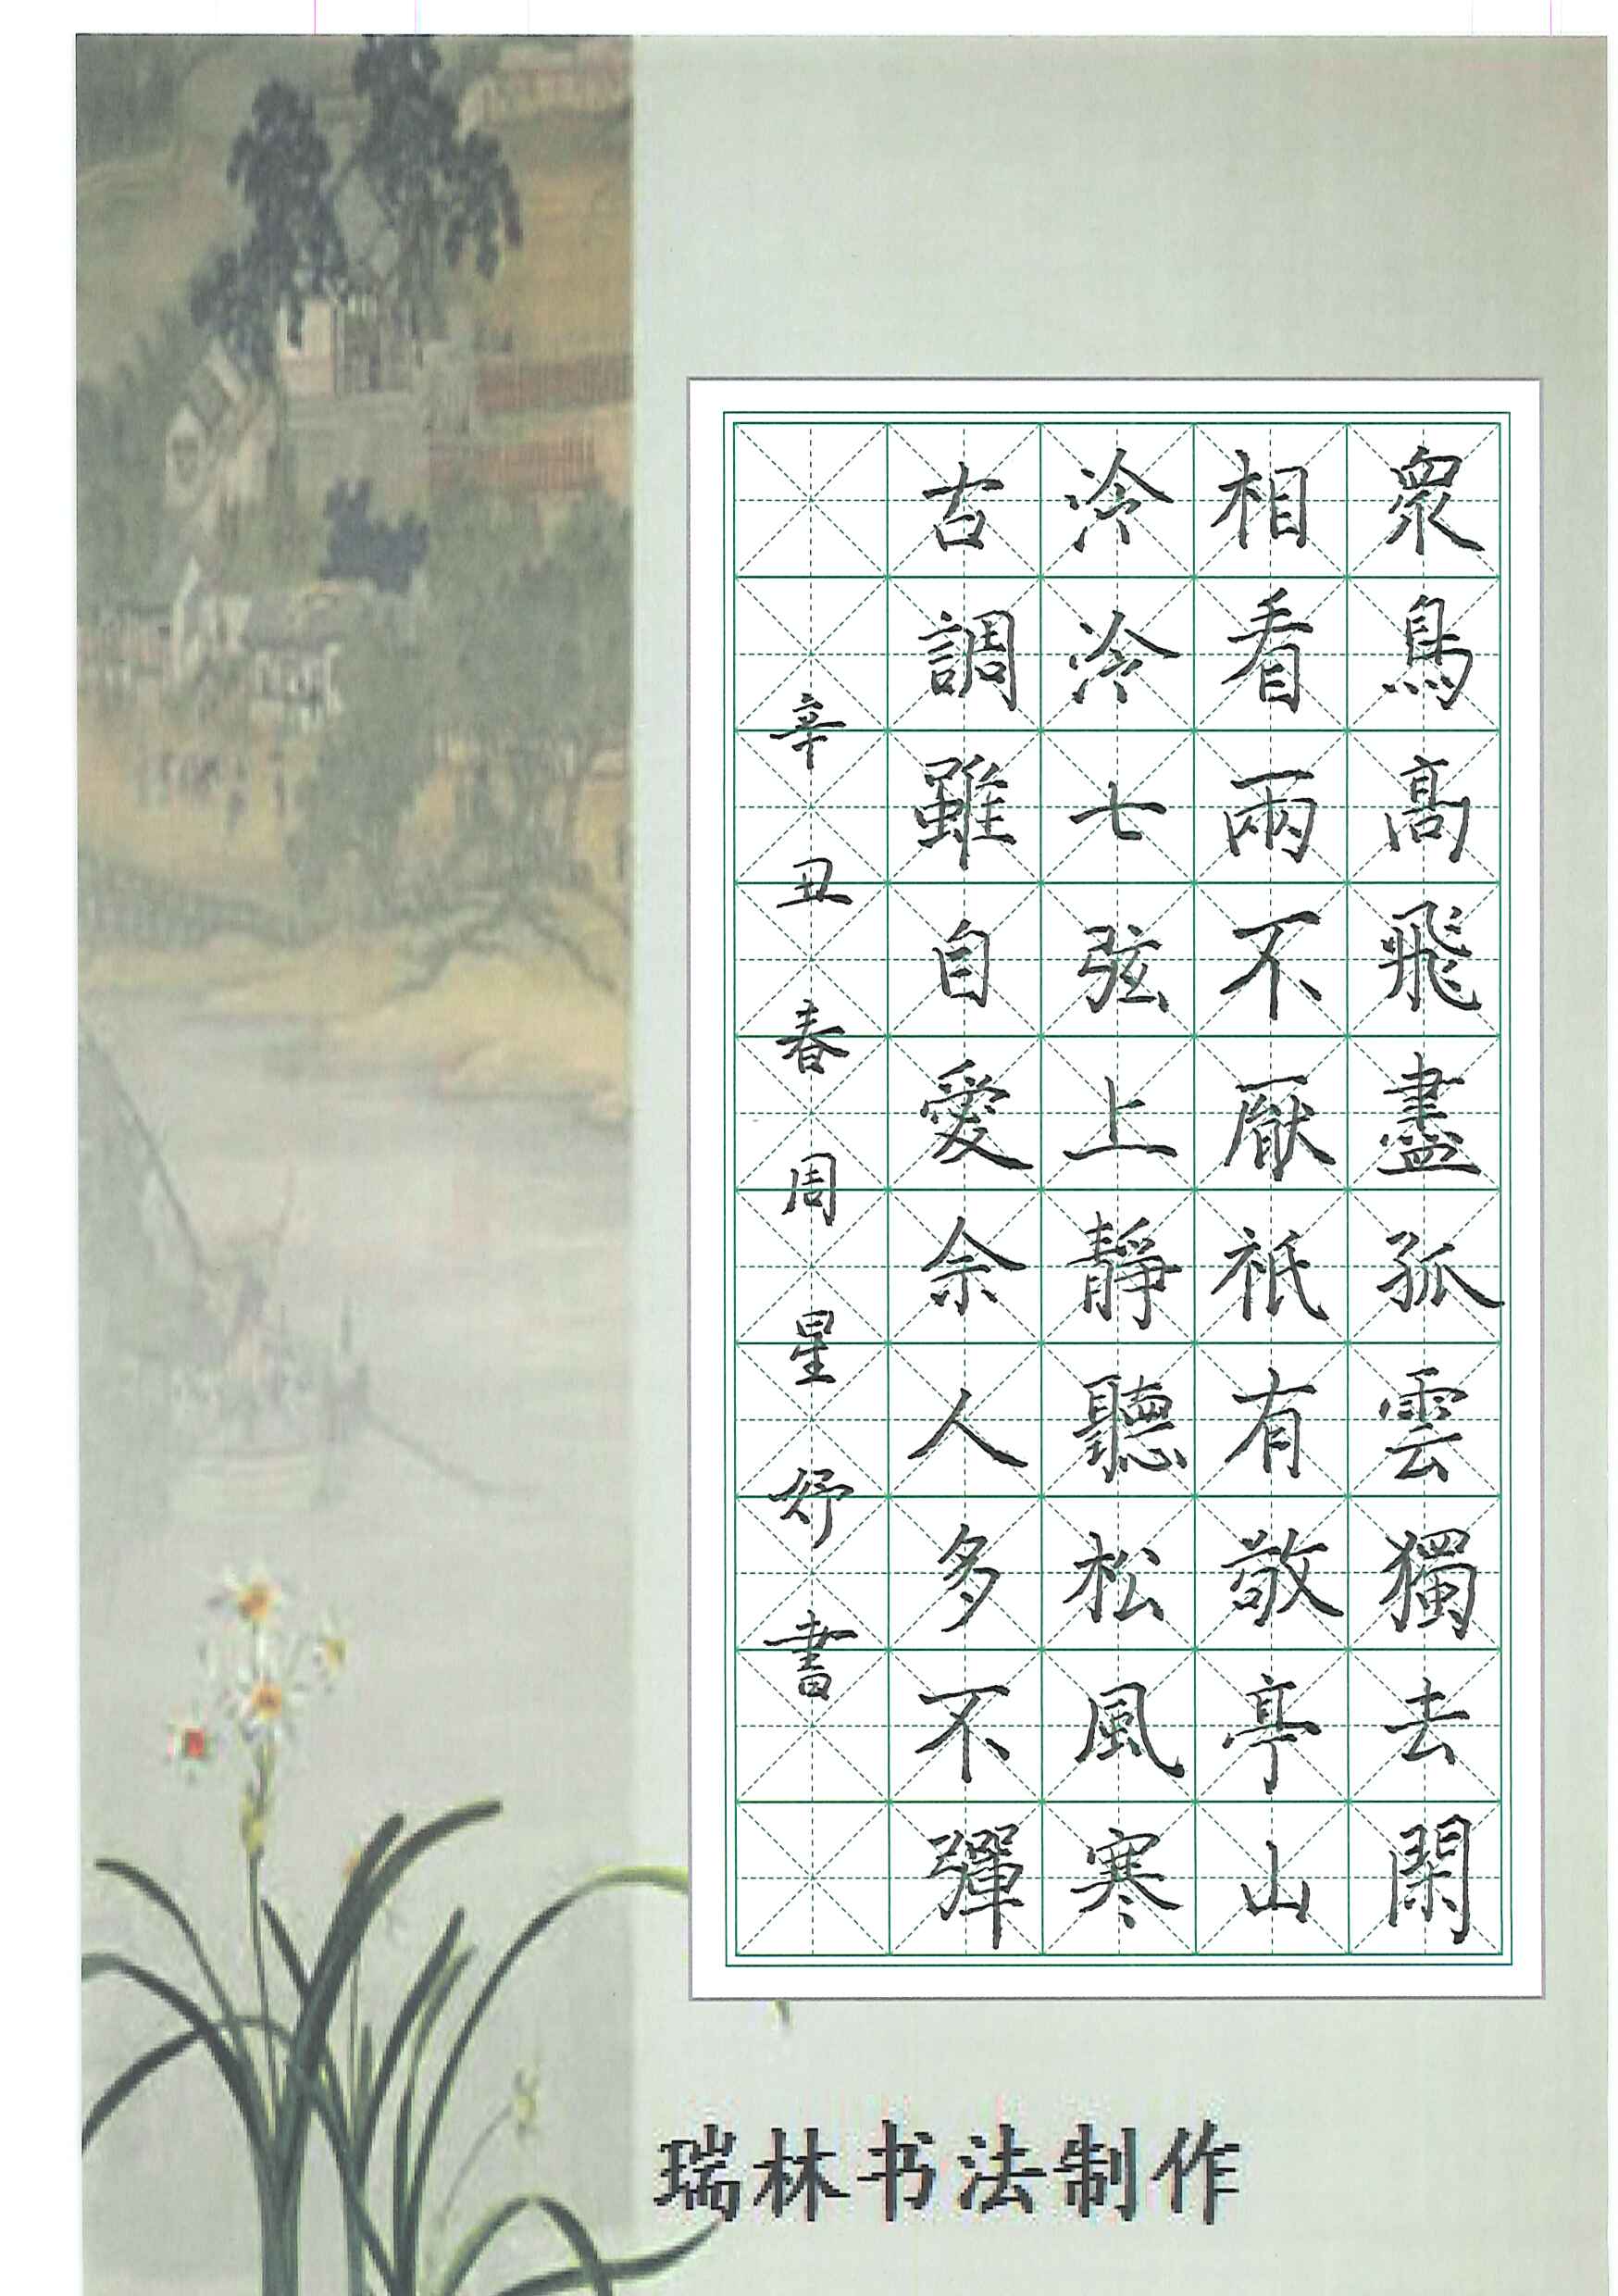 眾鳥高飛盡孤雲獨去閑
相看兩不厭祇有敬亭山
泠泠七弦上靜聽松風寒
古調雖自愛余人多不彈
辛丑春周星妤書
瑞林书法制作